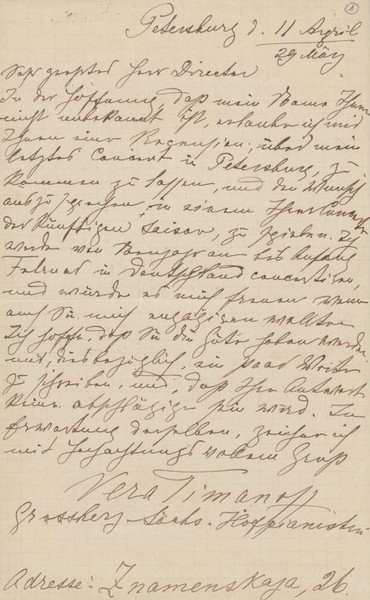 1
Petersburg d. 11 April
29 März
Sehr geehrter Herr Director
In der Hoffnung, daß mein Name Ihnen
nicht unbekannt ist, erlaube ich mir
Ihnen eine Rezension, über mein
letztes Concert in Petersburg, zu
kommen zu lassen, und den Wunsch
auszusprechen, in einem Ihrer Concerte
der künftigen Saison, zu spielen. Ich
werde von bis Anfang
Februar in Deutschland concertiren,
und würde es mich freuen wenn
auch Sie mich engagiren wollten
Ich hoffe, daß Sie die Güte haben werden
mir, diesbezüglich, ein paar Worte
zu schreiben, und, daß Ihre Antwort
keine abschlägige sein wird. In
Erwartung derselben, zeichne ich
mit hochachtungsvollem Gruß
Vera Timanoff
Grossherz. Sächs. Hofpianistin
Adresse: Znamenskaja, 26.